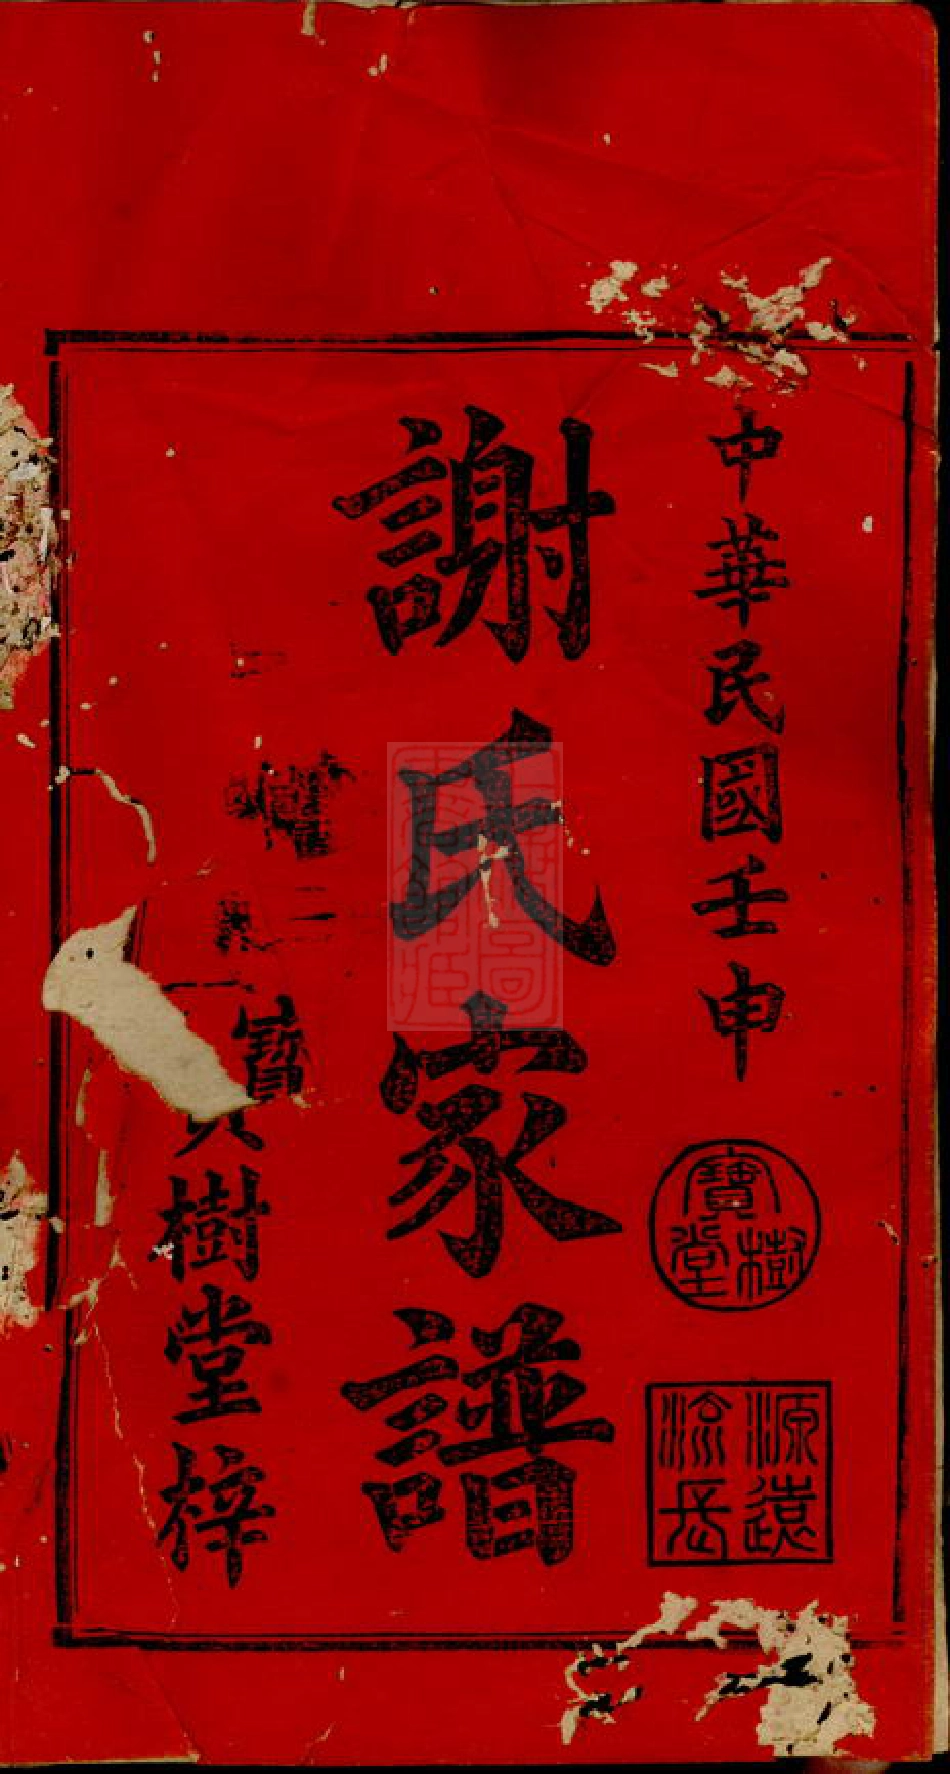 中華民國壬申
寶樹堂
源遠流長
謝氏家譜
寶樹堂梓